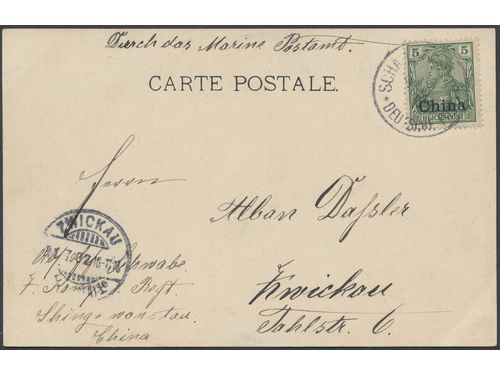 Durch das Marine Postamt.
CARTE POSTALE.
5 5
China
REICHSPOST
SCHA
DEU
Herrn
Alban Dassler
Zwickau
Tahlstr. 6.
ZWICKAU
Schwabe
7. Komp. Regt
Shing-wan-tau
China